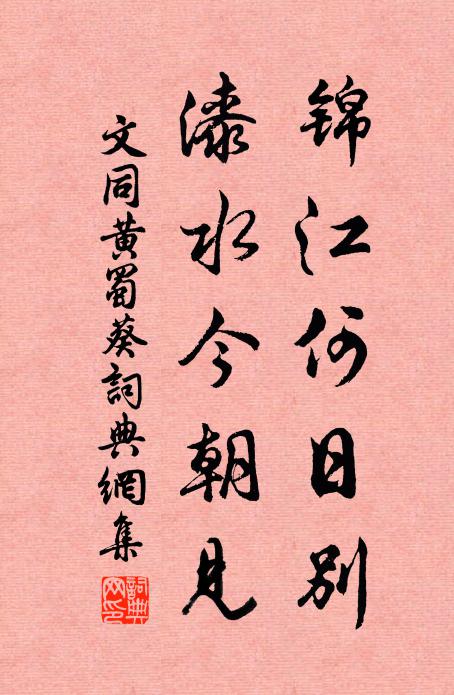 锦江何日别
漆水今朝见
文同黄蜀葵詞典網集
詞典網印